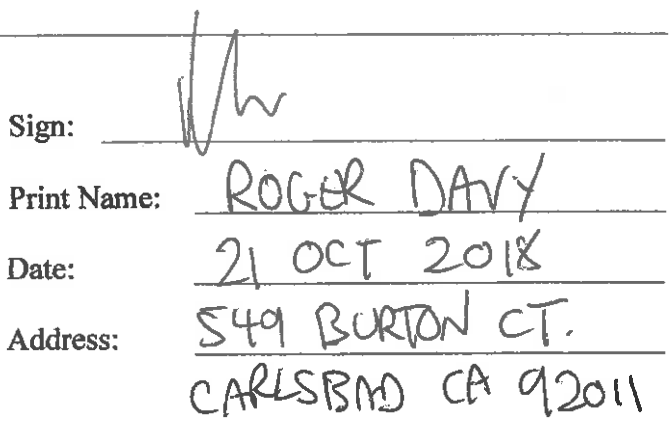 Sign:
Print Name: ROGER DAVY
Date: 21 OCT 2018
Address: 549 BURTON CT.
CARLSBAD CA 92011